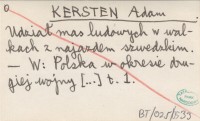 0
KERSTEN Adam.
Udział mas ludowych w wal-
kach z najazdem szwedzkim.
— W: Polska w okresie dru-
giej wojny [...] t. 1.
BJ/025/539